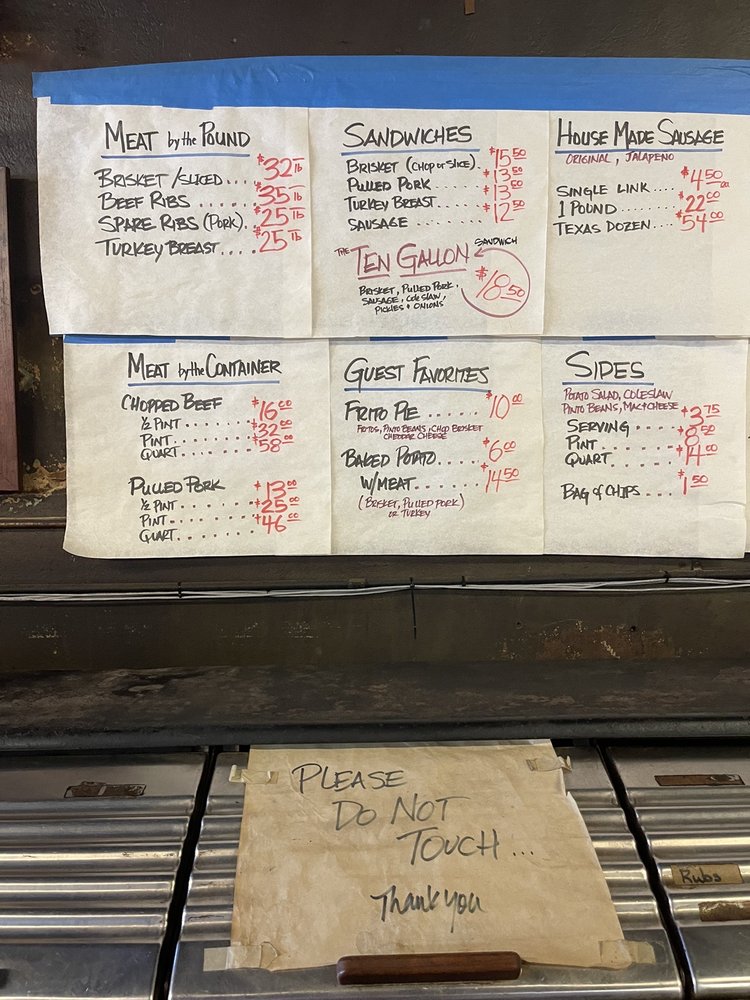 MEAT by the POUND
BRISKET / SLICED.... $32 lb
BEEF RIBS...... $35 lb
SPARE RIBS (PORK). $25 lb
TURKEY BREAST.... $25 lb
SANDWICHES
BRISKET (CHOP OR SLICE). $15 50
PULLED PORK...... $13 50
TURKEY BREAST..... $13 50
SAUSAGE........ $12 50
THE TEN GALLON SANDWICH
$18.50
BRISKET, PULLED PORK,
SAUSAGE, COLESLAW,
PICKLES + ONIONS
HOUSE MADE SAUSAGE
ORIGINAL, JALAPENO
SINGLE LINK.... $4 50 ea
1 POUND....... $22 00
TEXAS DOZEN.... $54 00
MEAT by the CONTAINER
CHOPPED BEEF
1/2 PINT...... $16 00
PINT....... $32 00
QUART...... $58 00
PULLED PORK
1/2 PINT...... $13 00
PINT....... $25 00
QUART...... $46 00
GUEST FAVORITES
FRITO PIE...... $10 00
FRITOS, PINTO BEANS, CHOP BRISKET
CHEDDAR CHEESE
BAKED POTATO..... $6 00
W/MEAT...... $14 50
(BRISKET, PULLED PORK)
OR TURKEY
SIDES
POTATO SALAD, COLESLAW
PINTO BEANS, MAC+CHEESE
SERVING..... $3 75
PINT....... $8 50
QUART...... $14 00
BAG of CHIPS.... $1 50
PLEASE
DO NOT
TOUCH...
Thank you
Rubs